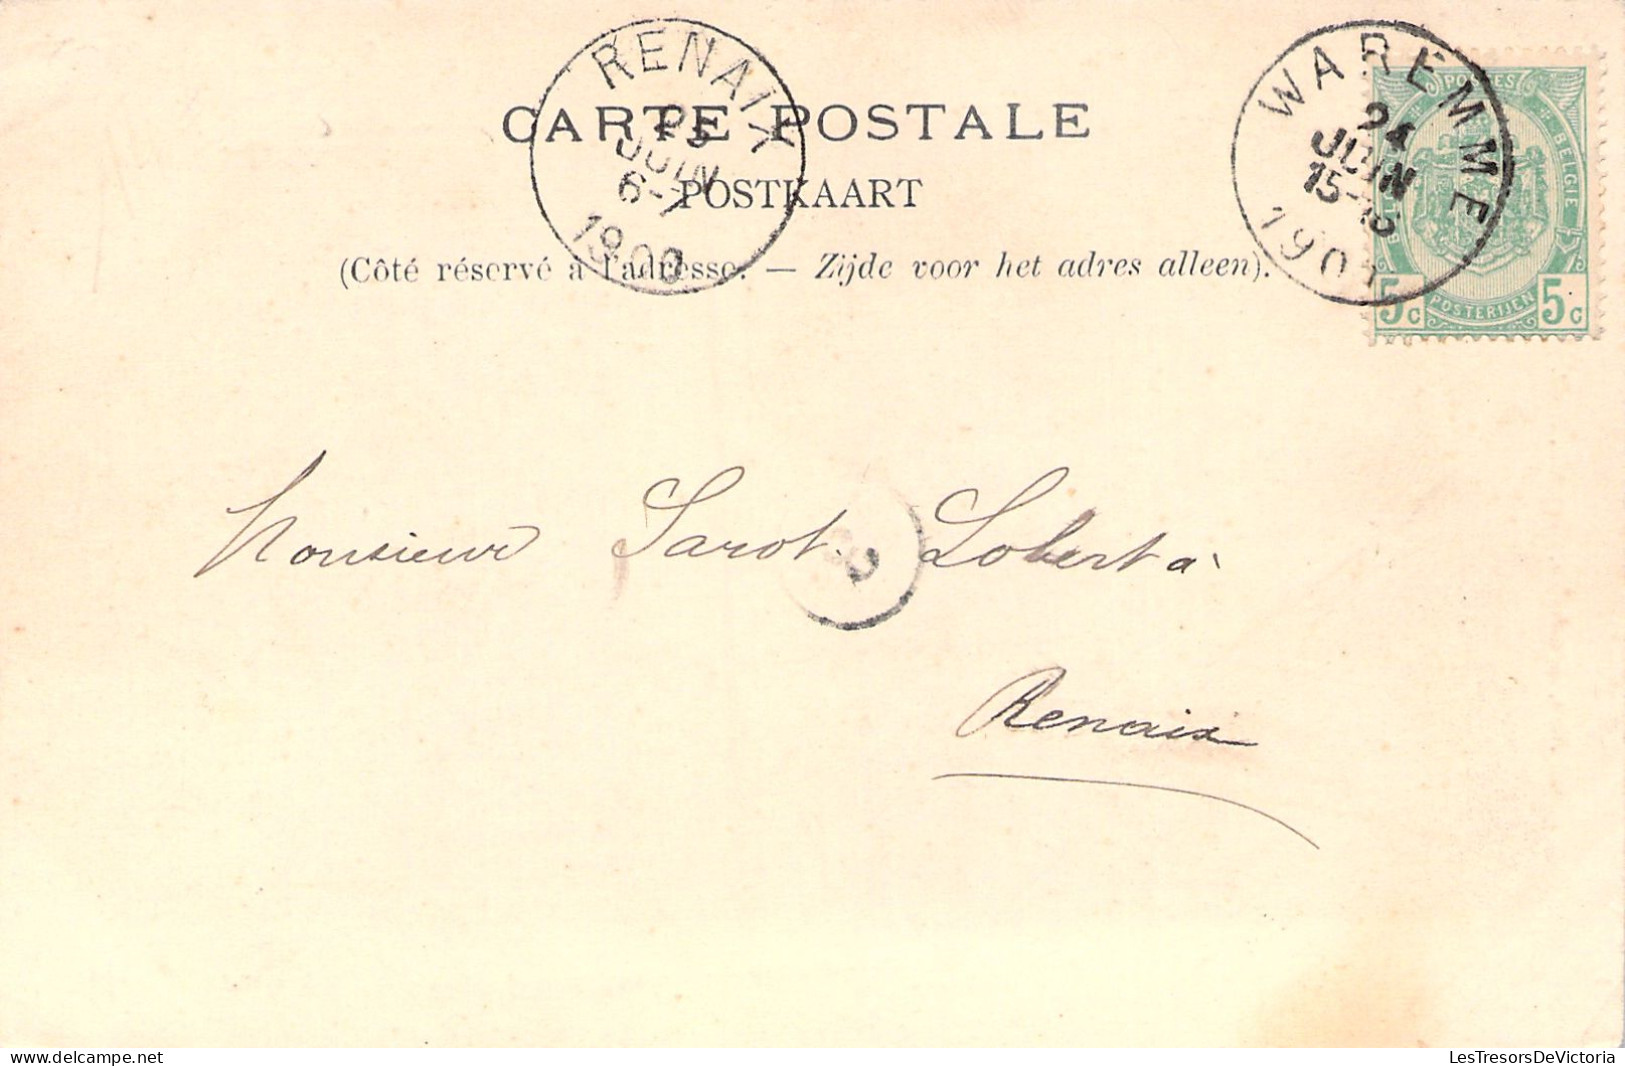 RENAIX
25
JUIN
6-7
1900
WAREMME
24
JUIN
15-16
1901
POSTES
BELGIE
5c POSTERIJEN 5c
CARTE POSTALE
POSTKAART
(Côté réservé à l'adresse. — Zijde voor het adres alleen).
Monsieur Sarot. Lobert à
Renaix
LesTresorsDeVictoria